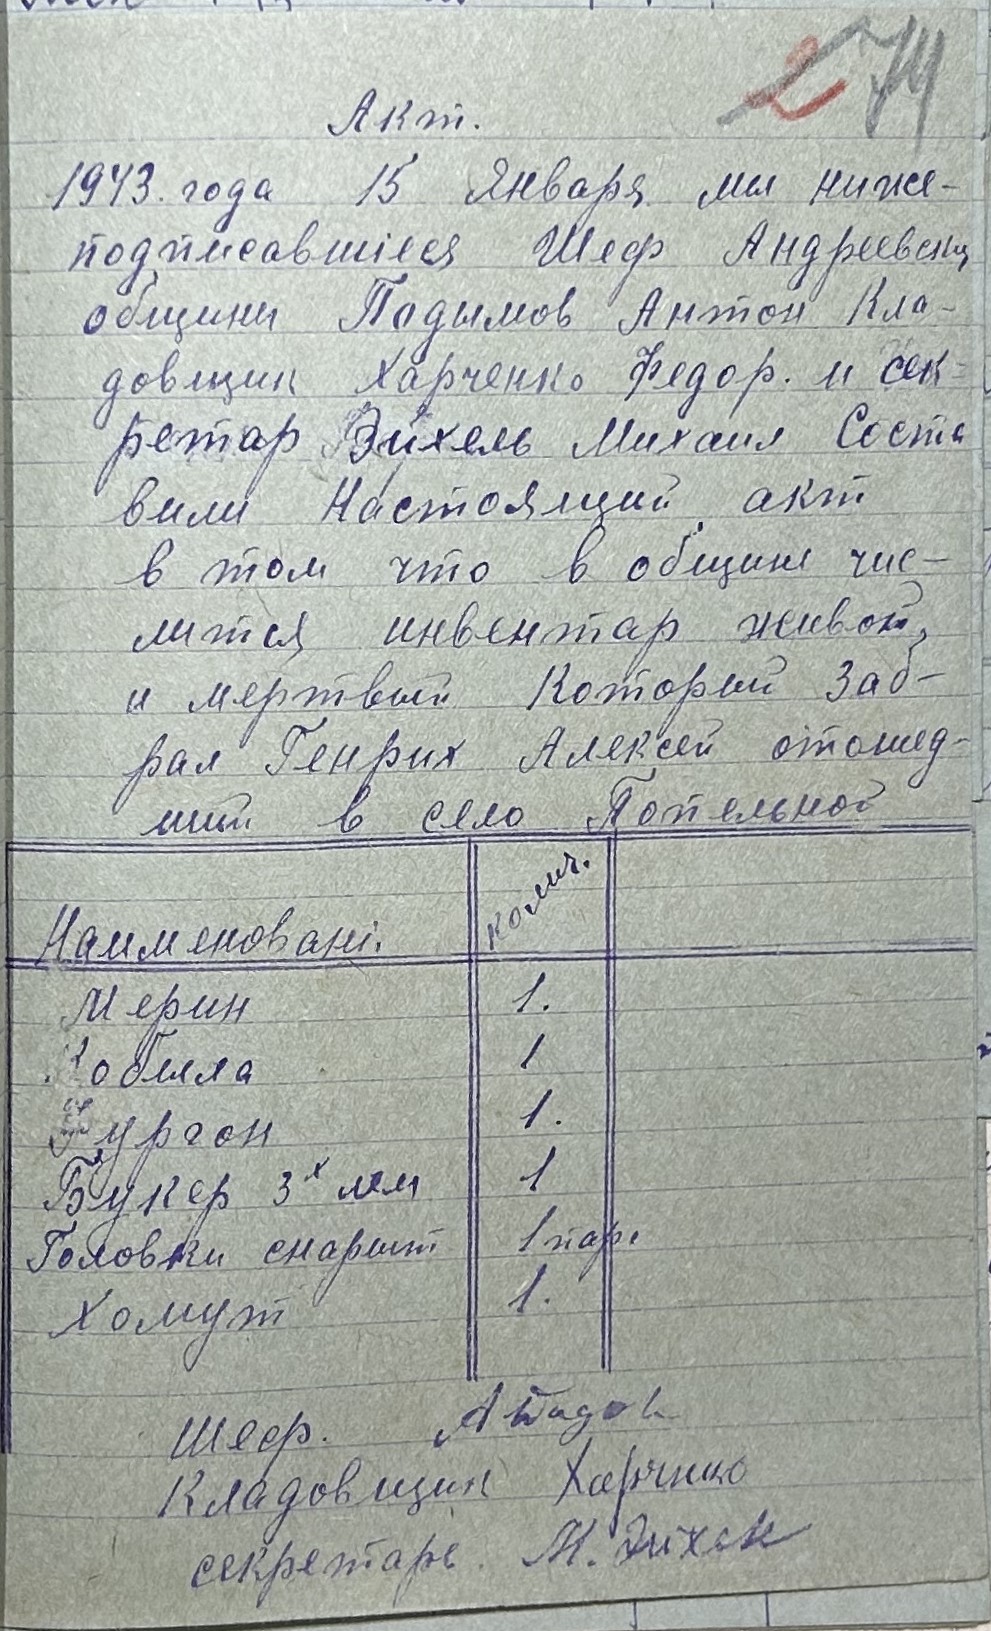 74
Акт.
1943. года 15 Января мы ниже-
подписавшиеся Шеф Андреевски
общины Падымов Антон Кла-
довщик Харченко Федор. и сек-
ретар Эйхель Михаил Соста
вили Настоящий акт
в том что в общине чис-
лится инвентар живой,
и мертвый Который Заб-
рал Генрих Алексей отошед-
ший в село Топельной
Наименовані. колич.
Мерин 1.
Кобыла 1
Фургон 1.
Букер 3х лем 1
Головки снарыт 1 пар.
Хомут 1.
Шеф.
Кладовщик Харченко
секретарь. М. Эйхель